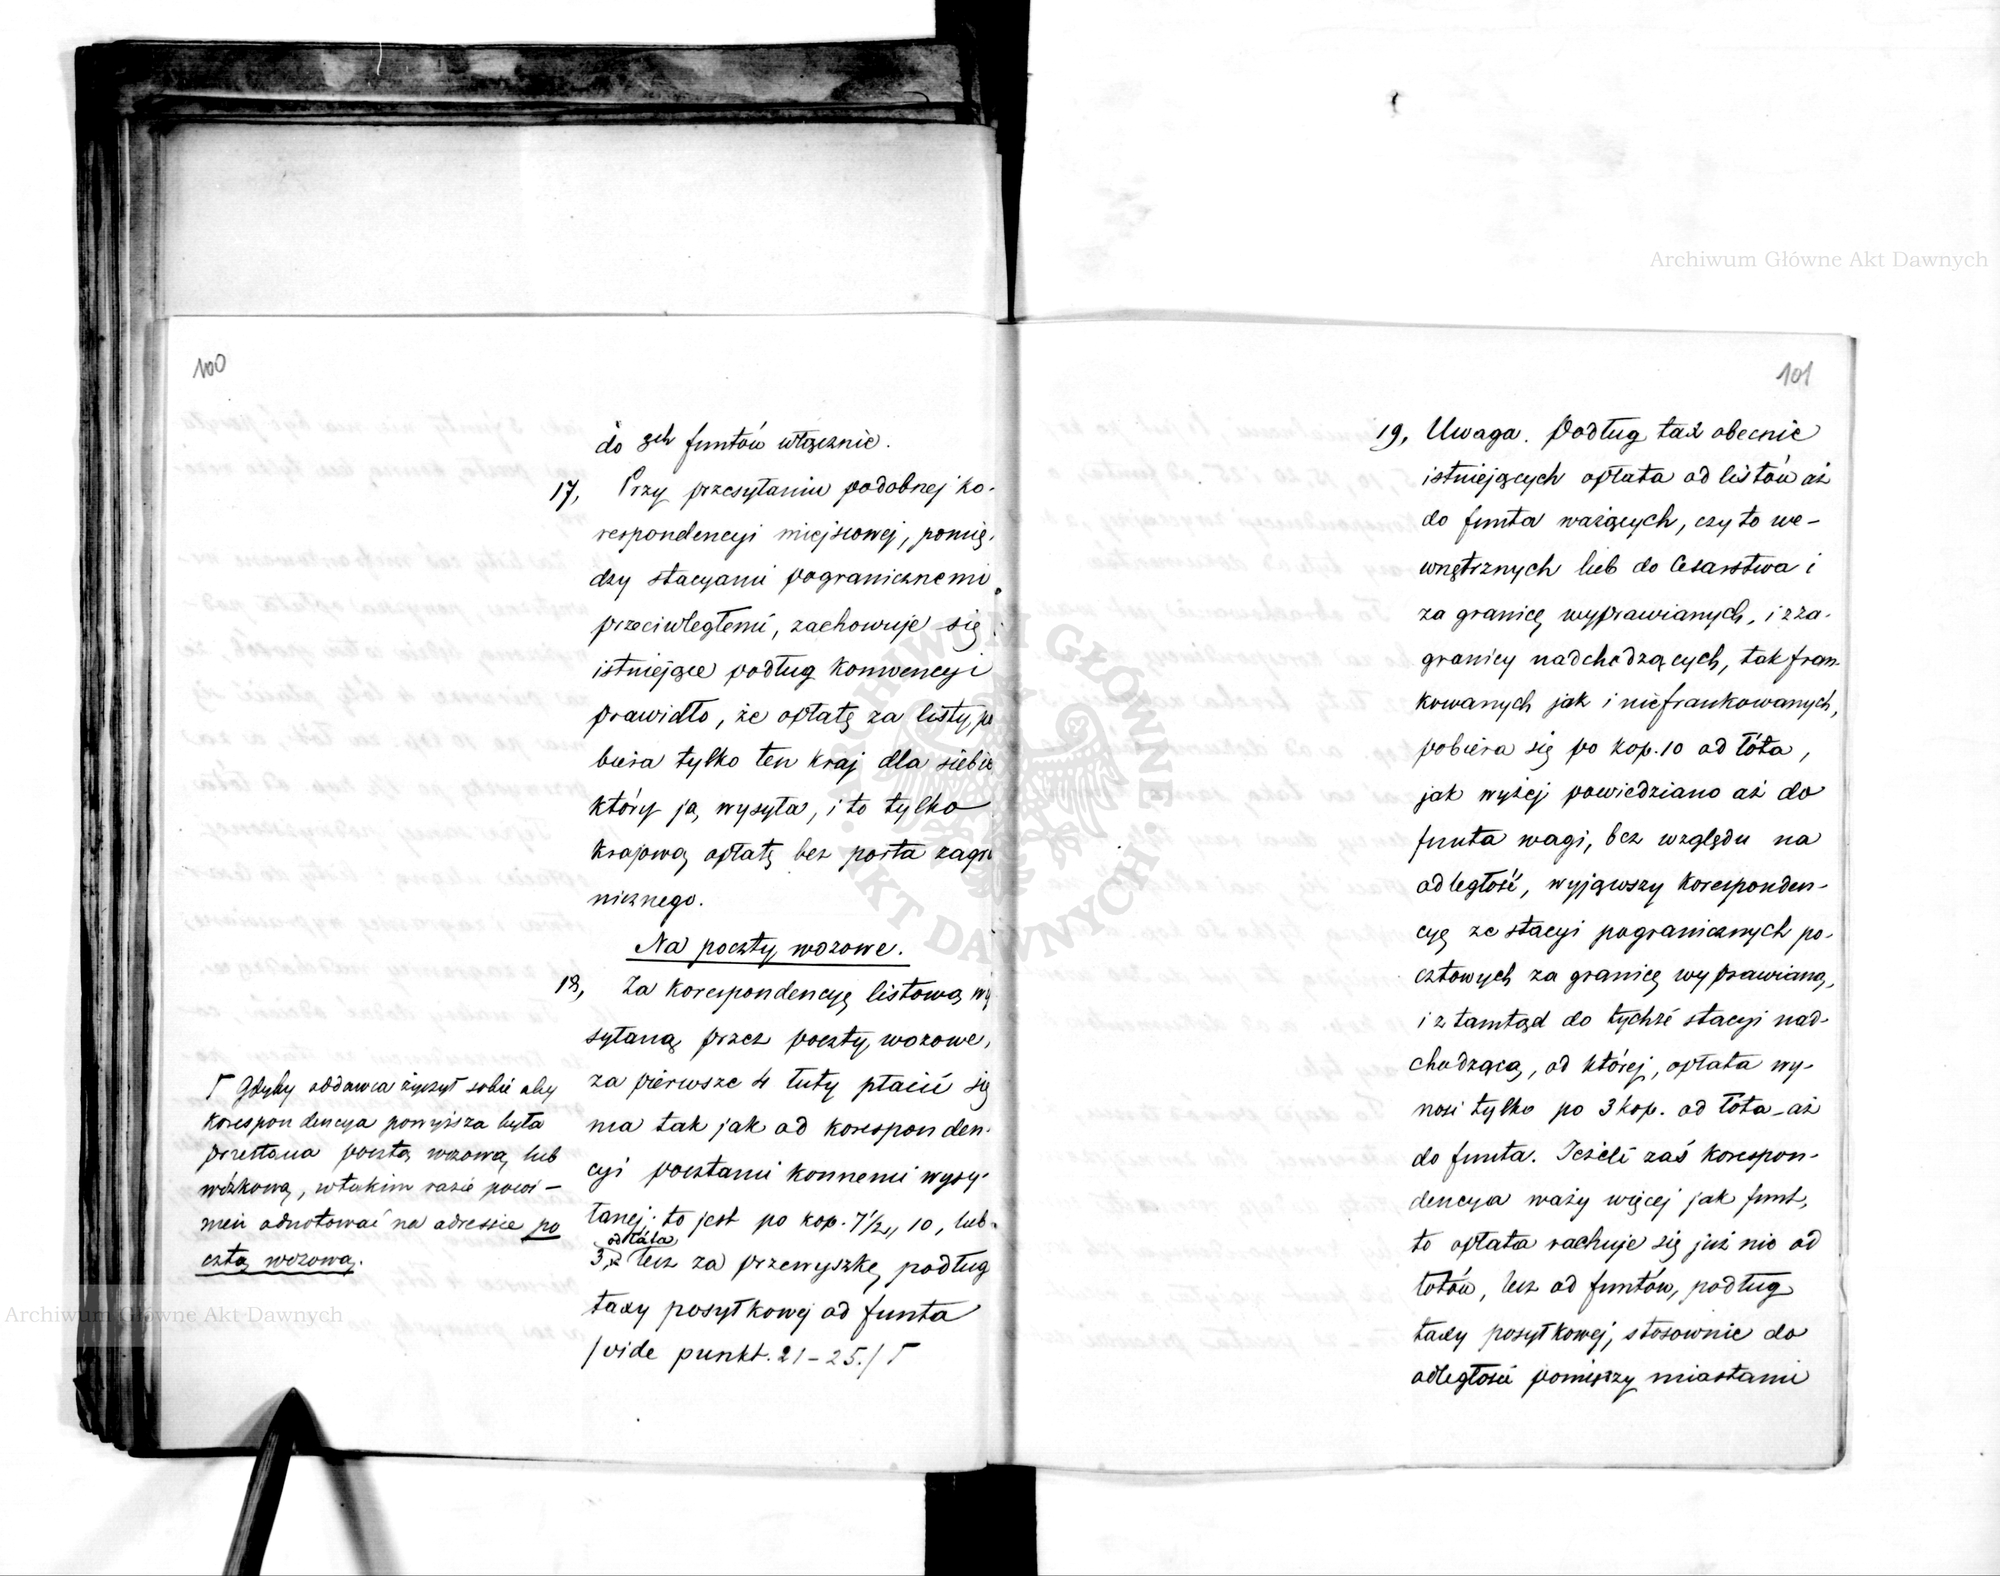 100
do 3ch funtów włącznie.
17, Przy przesyłaniu podobnej ko-
respondencyi miejscowej, pomię-
dzy stacyami pogranicznemi
przeciwległemi, zachowuje się
istniejące podług Konwencyi
prawidło, że opłatę za listy, po
biera tylko ten kraj dla siebie
który ją wysyła, i to tylko
krajową opłatę bez porta zagr
nicznego.
Na poczty wozowe.
18, Za korespondencyę listową wy
syłaną przez poczty wozowe,
za pierwsze 4 łuty płacić się
ma tak jak od koresponden-
cyi pocztami konnemi wysy-
łanej; to jest po kop. 7½, 10, lub
od łóta
3, lecz za przewyszkę podług
taxy posyłkowej od funta
/vide punkt. 21-25./ Γ
Γ Gdyby oddawca życzył sobie aby
korespondencya powyższa była
przesłana pocztą wozową lub
wózkową, w takim razie powi-
nien adnotować na adressie po
cztą wozową.
101
19, Uwaga. Podług tax obecnie
istniejących opłata od listów aż
do funta ważących, czy to we-
wnętrznych lub do Cesarstwa i
za granicę wyprawianych, i z za-
granicy nadchodzących, tak fran-
kowanych jak i niefrankowanych,
pobiera się po kop. 10 od łóta,
jak wyżej powiedziano aż do
funta wagi, bez względu na
odległość, wyjąwszy koresponden-
cyę ze stacyi pogranicznych po-
cztowych za granicę wyprawianą,
i z tamtąd do tychże stacyi nad-
chodzącą, od której, opłata wy-
nosi tylko po 3 kop. od łóta aż
do funta. Jeżeli zaś korespon-
dencya waży więcej jak funt,
to opłata rachuje się już nie od
łotów, lecz od funtów, podług
taxy posyłkowej, stosownie do
odległości pomiędzy miastami
Archiwum Główne Akt Dawnych
Archiwum Główne Akt Dawnych
ARCHIWUM GŁÓWNE AKT DAWNYCH